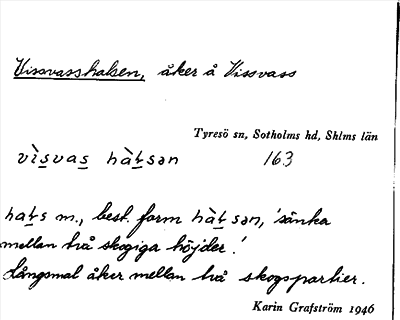 Vissvasshalsen, åker å Vissvass
Tyresö sn, Sotholms hd, Shlms län
vìs̱vas̱ hàḻsən 163
haḻs m., best. form hàḻsən, 'sänka
mellan två skogiga höjder'.
Långsmal åker mellan två skogspartier.
Karin Grafström 1946